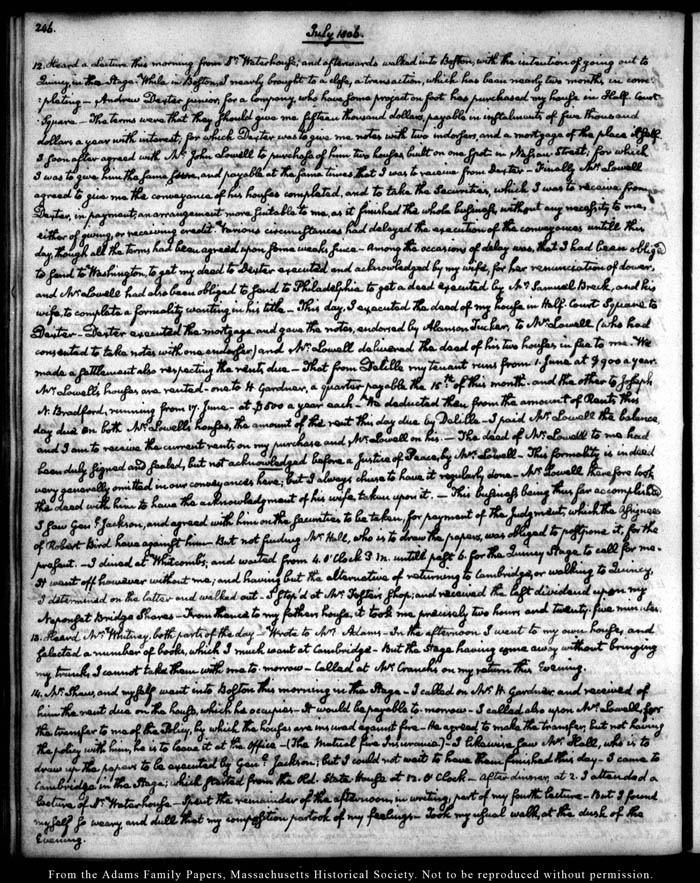 246.
July 1806.
12. Heard a lecture this morning from Dr. Waterhouse; and afterwards walked into Boston, with the intention of going out to
Quincy, in the Stage. While in Boston, I nearly brought to a close, a transaction, which has been nearly two months in com-
:pleting — Andrew Dexter junior, for a Company, who have some project on foot has purchased my house in Half Court
Square — The terms were that they should give me fifteen thousand dollars, payable in instalments of five thousand
dollars a year with interest; for which Dexter was to give me notes with two indorsers, and a mortgage of the place itself.
I soon after agreed with Mr. John Lowell to purchase of him two houses built on one spot in Nassau Street, for which
I was to give him the same sum, and payable at the same times that I was to receive from Dexter — Finally Mr. Lowell
agreed to give me the conveyance of his houses completed, and to take the Securities, which I was to receive from
Dexter, in payment, an arrangement more suitable to me, as it finished the whole business, without any necessity to me,
either of giving, or receiving credit. Various circumstances had delayed the execution of the conveyances until this
day, though all the terms had been agreed upon some weeks since — Among the occasions of delay was, that I had been obliged
to send to Washington, to get my deed to Dexter executed and acknowledged by my wife, for her renunciation of dower,
and Mr. Lowell had also been obliged to send to Philadelphia to get a deed executed by Mr. Samuel Breck, and his
wife, to complete a formality wanting in his title — This day, I executed the deed of my house in Half Court Square to
Dexter — Dexter executed the mortgage and gave the notes, endorsed by Alanson Tucker, to Mr. Lowell (who had
consented to take notes with one endorser) and Mr. Lowell delivered the deed of his two houses in fee to me. We
made a settlement also respecting the rents due — That from Delille my tenant runs from 1. June at $900 a year.
Mr. Lowell's houses are rented — one to H. Gardner, a quarter payable the 15th. of this month — and the other to Joseph
N. Bradford, running from 17. June — at $500 a year each — We deducted then from the amount of Rents this
day due on both Mr. Lowell's houses, the amount of the rent this day due by Delille — I paid Mr. Lowell the balance,
and I am to receive the current rents on my purchase and Mr. Lowell on his. — The deed of Mr. Lowell to me had
been duly signed and sealed, but not acknowledged before a Justice of Peace, by Mrs. Lowell — This formality is indeed
very generally omitted in our conveyances here; but I always chuse to have it regularly done — Mr. Lowell therefore took
the deed with him to have the acknowledgment of his wife, taken upon it. — This business being thus far accomplished
I saw Genl. Jackson, and agreed with him on the securities to be taken, for payment of the Judgment, which the Assignees
of Robert Bird have against him — But not finding Mr. Hall, who is to draw the papers, was obliged to postpone it, for the
present. — I dined at Whitcombs; and waited from 4. O'Clock P.M. untill past 6. for the Quincy Stage to call for me.
It went off however without me; and having but the alternative of returning to Cambridge, or walking to Quincy,
I determined on the latter and walked out — I stop'd at Mr. Foster's shop; and received the last dividend upon my
Neponset Bridge Shares — From thence to my father's house, it took me precisely, two hours and twenty-five minutes.
13. Heard Mr. Whitney, both parts of the day — Wrote to Mrs. Adams — In the afternoon I went to my own house, and
selected a number of books, which I much want at Cambridge — But the Stage having come away without bringing
my trunk, I cannot take them with me to-morrow — Called at Mr. Cranch's on my return this Evening.
14. Mr. Shaw, and myself went into Boston this morning in the Stage — I called on Mr. H. Gardner, and received of
him the rent due on the house, which he occupies — It would be payable to-morrow — I called also upon Mr. Lowell, for
the transfer to me of the Policy, by which the houses are insured against fire — He agreed to make the transfer, but not having
the policy with him, he is to leave it at the Office — (The Mutual fire Insurance) — I likewise saw Mr. Hall, who is to
draw up the papers to be executed by Genl. Jackson; but I could not wait to have them finished this day — I came to
Cambridge in the Stage; which started from the Old State House at 12. O'Clock — After dinner, at 2. I attended a
lecture of Dr. Waterhouse — Spent the remainder of the afternoon, in writing part of my fourth lecture — But I found
myself so weary and dull that my composition partook of my feelings — Took my usual walk, at the dusk of the
Evening.
From the Adams Family Papers, Massachusetts Historical Society. Not to be reproduced without permission.